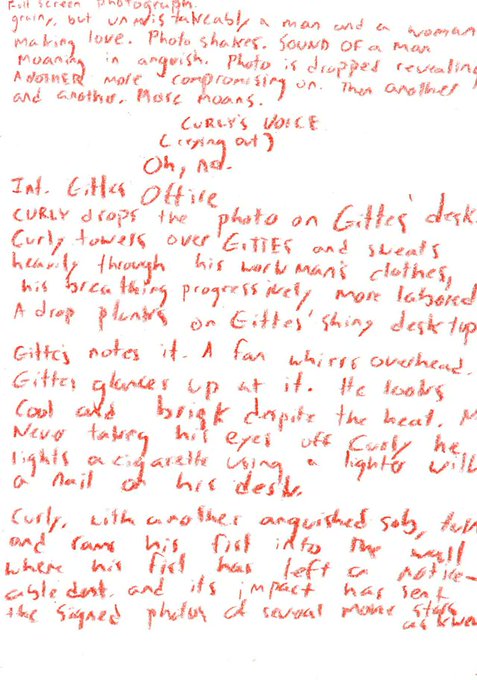 Full screen photograph.
grainy, but unmistakeably a man and a woman
making love. Photo shakes. SOUND OF a man
moaning in anguish. Photo is dropped revealing
Another more compromising on. Then another
and another. More moans.
CURLY'S VOICE
(crying out)
Oh, no.
Int. Gittes Office
CURLY drops the photo on Gittes' desk.
Curly towers over GITTES and sweats
heavily through his workman's clothes,
his breathing progressively more labored
A drop plunks on Gittes' shiny desktop
Gittes notes it. A fan whirrs overhead.
Gittes glances up at it. He looks
Cool and brisk despite the heat. M
Never taking his eyes off Curly he
lights a cigarette using a lighter with
a nail on his desk.
Curly, with another anguished sob, turn
and rams his fist into the wall
where his fist has left a notice-
able dent and its impact has sent
the signed photos of several movie stars
askew